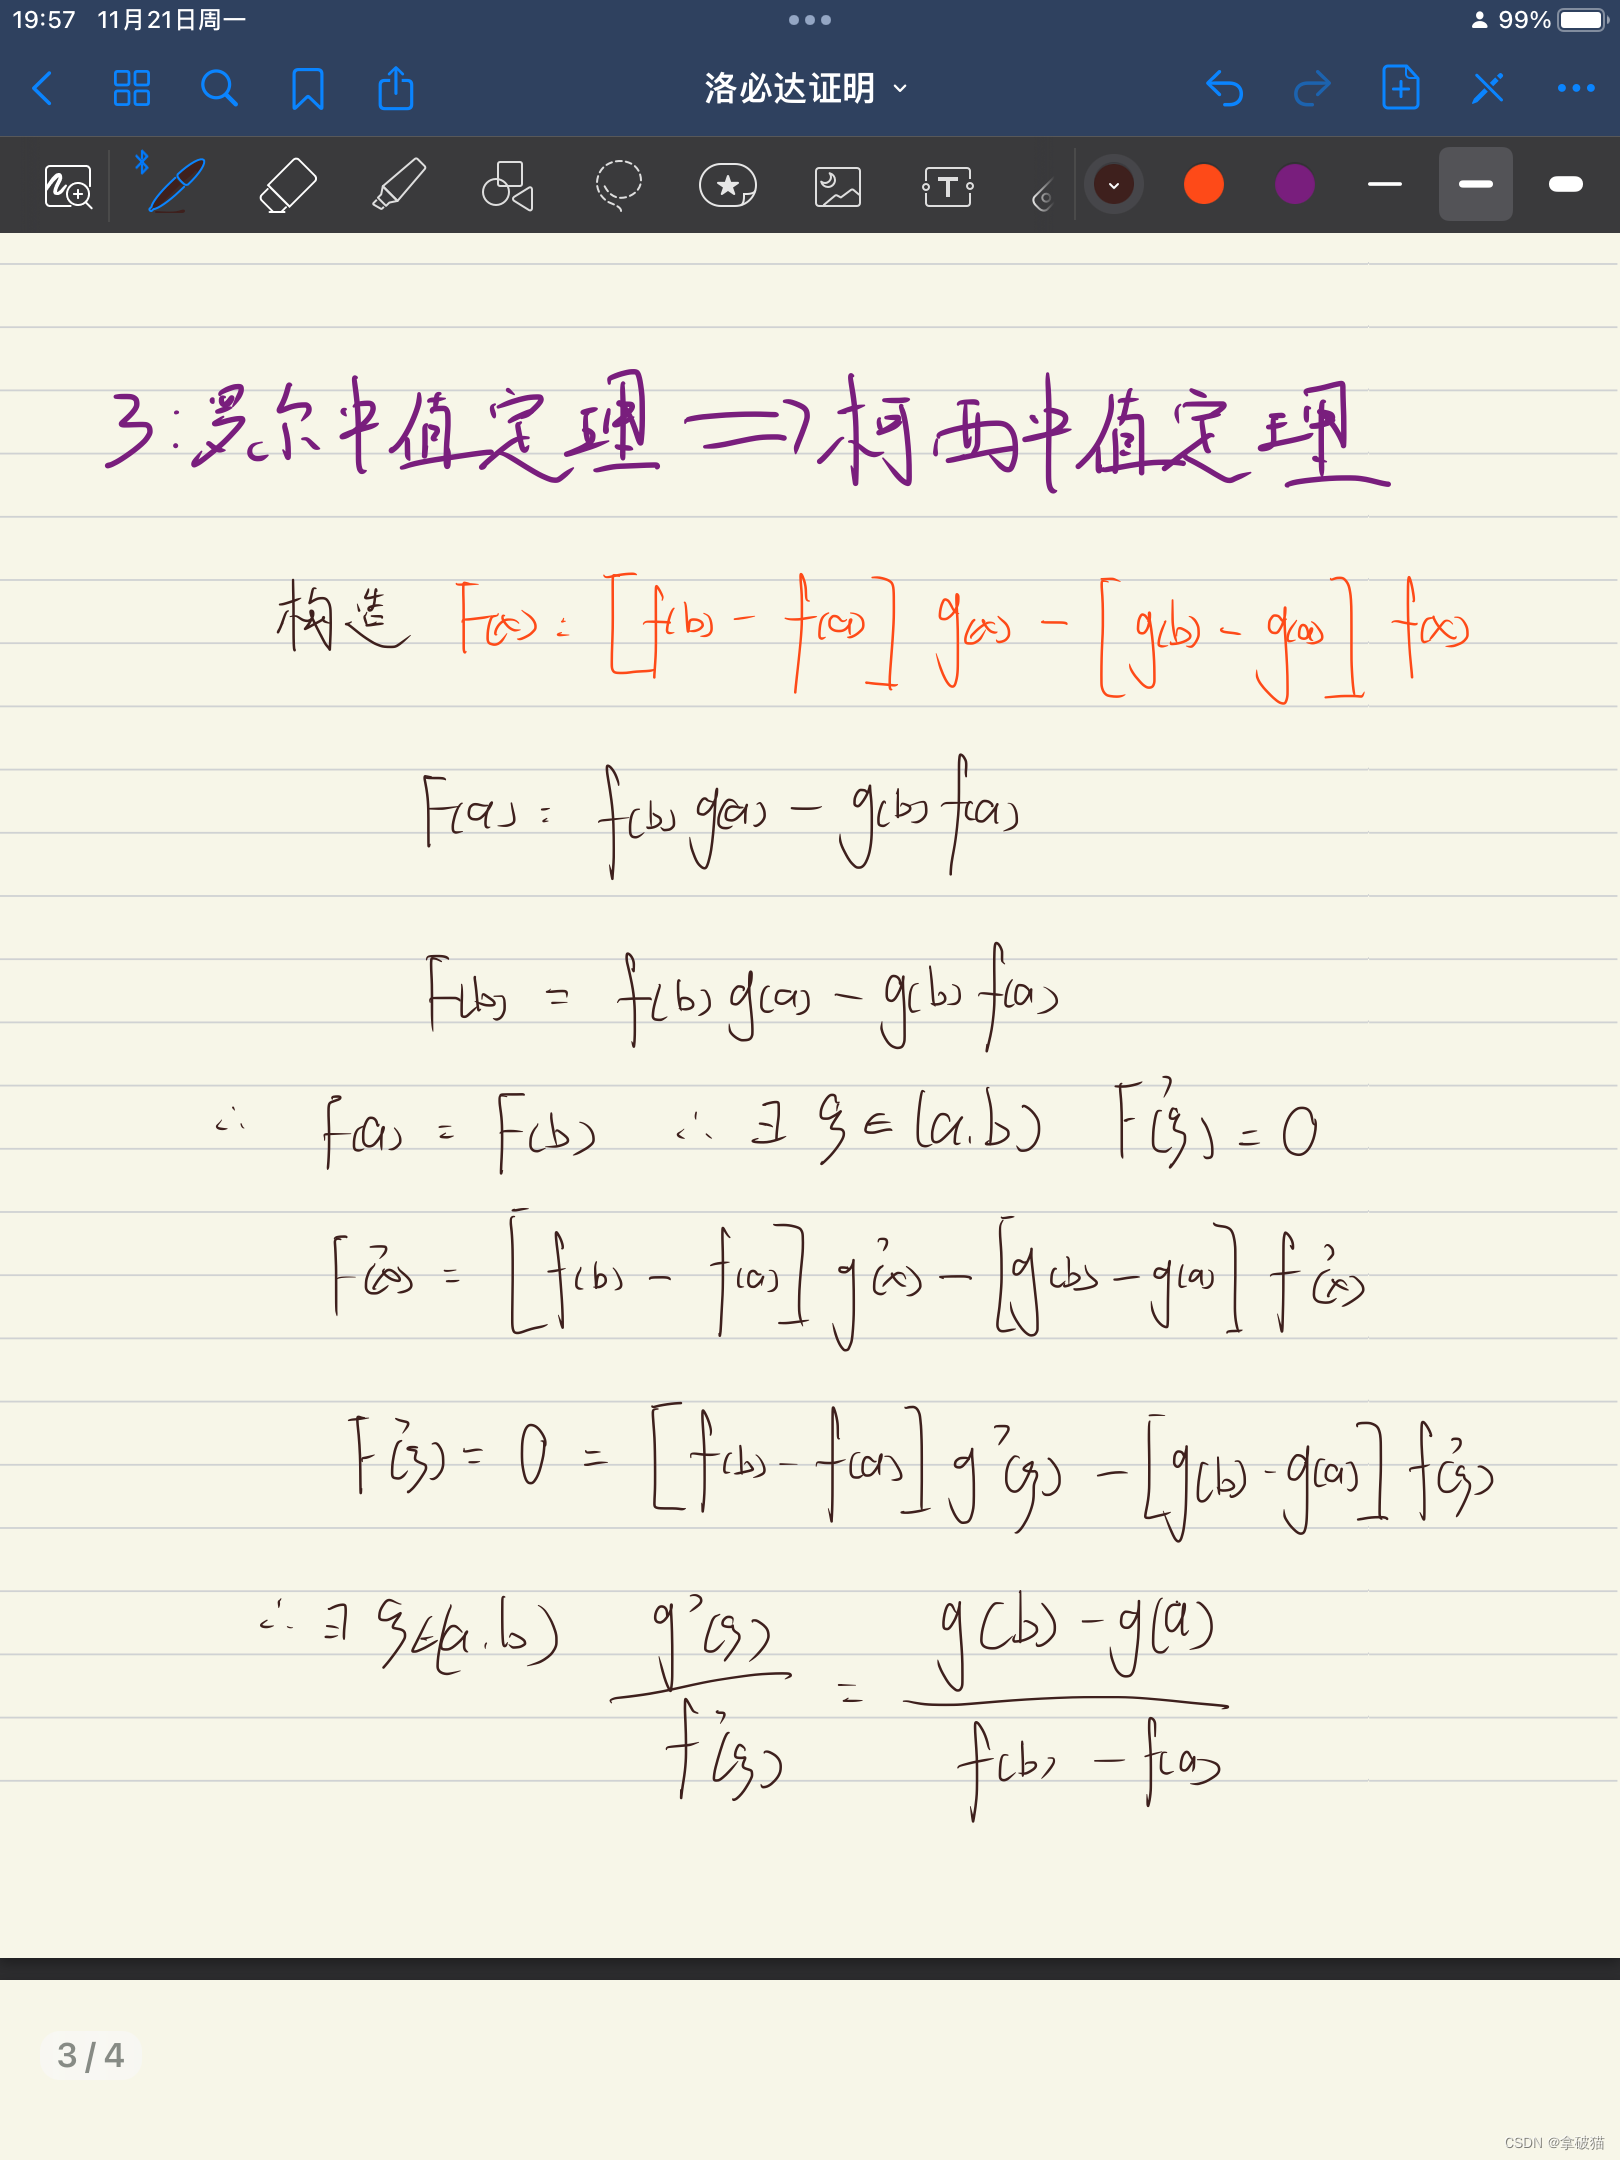 19:57 11月21日周一 99%
洛必达证明
3:罗尔中值定理 ⟹ 柯西中值定理
构造 F(x) = [f(b) - f(a)] g(x) - [g(b) - g(a)] f(x)
F(a) = f(b) g(a) - g(b) f(a)
F(b) = f(b) g(a) - g(b) f(a)
∴ F(a) = F(b) ∴ ∃ ξ ∈ (a.b) F'(ξ) = 0
F'(x) = [f(b) - f(a)] g'(x) - [g(b) - g(a)] f'(x)
F'(ξ) = 0 = [f(b) - f(a)] g'(ξ) - [g(b) - g(a)] f'(ξ)
∴ ∃ ξ ∈ (a.b) g'(ξ) / f'(ξ) = g(b) - g(a) / f(b) - f(a)
3 / 4
CSDN @拿破猫